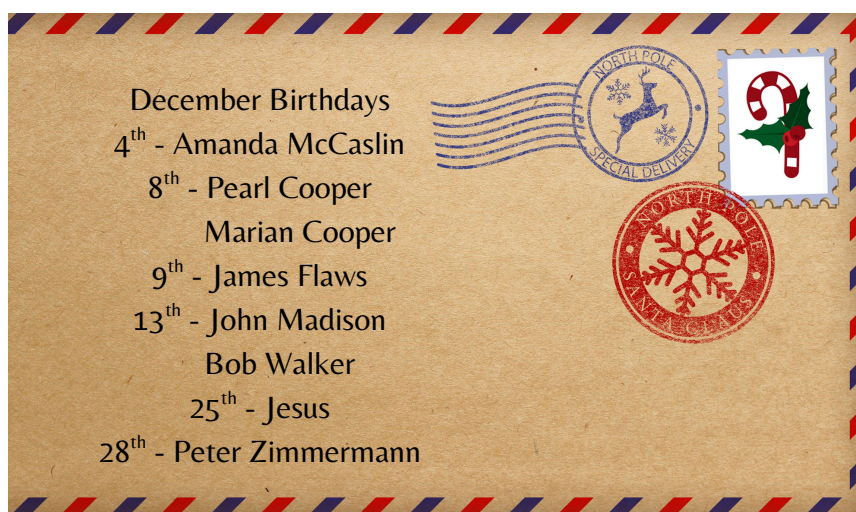 December Birthdays
4th - Amanda McCaslin
8th - Pearl Cooper
Marian Cooper
9th - James Flaws
13th - John Madison
Bob Walker
25th - Jesus
28th - Peter Zimmermann
NORTH POLE
SPECIAL DELIVERY
NORTH POLE
SANTA CLAUS